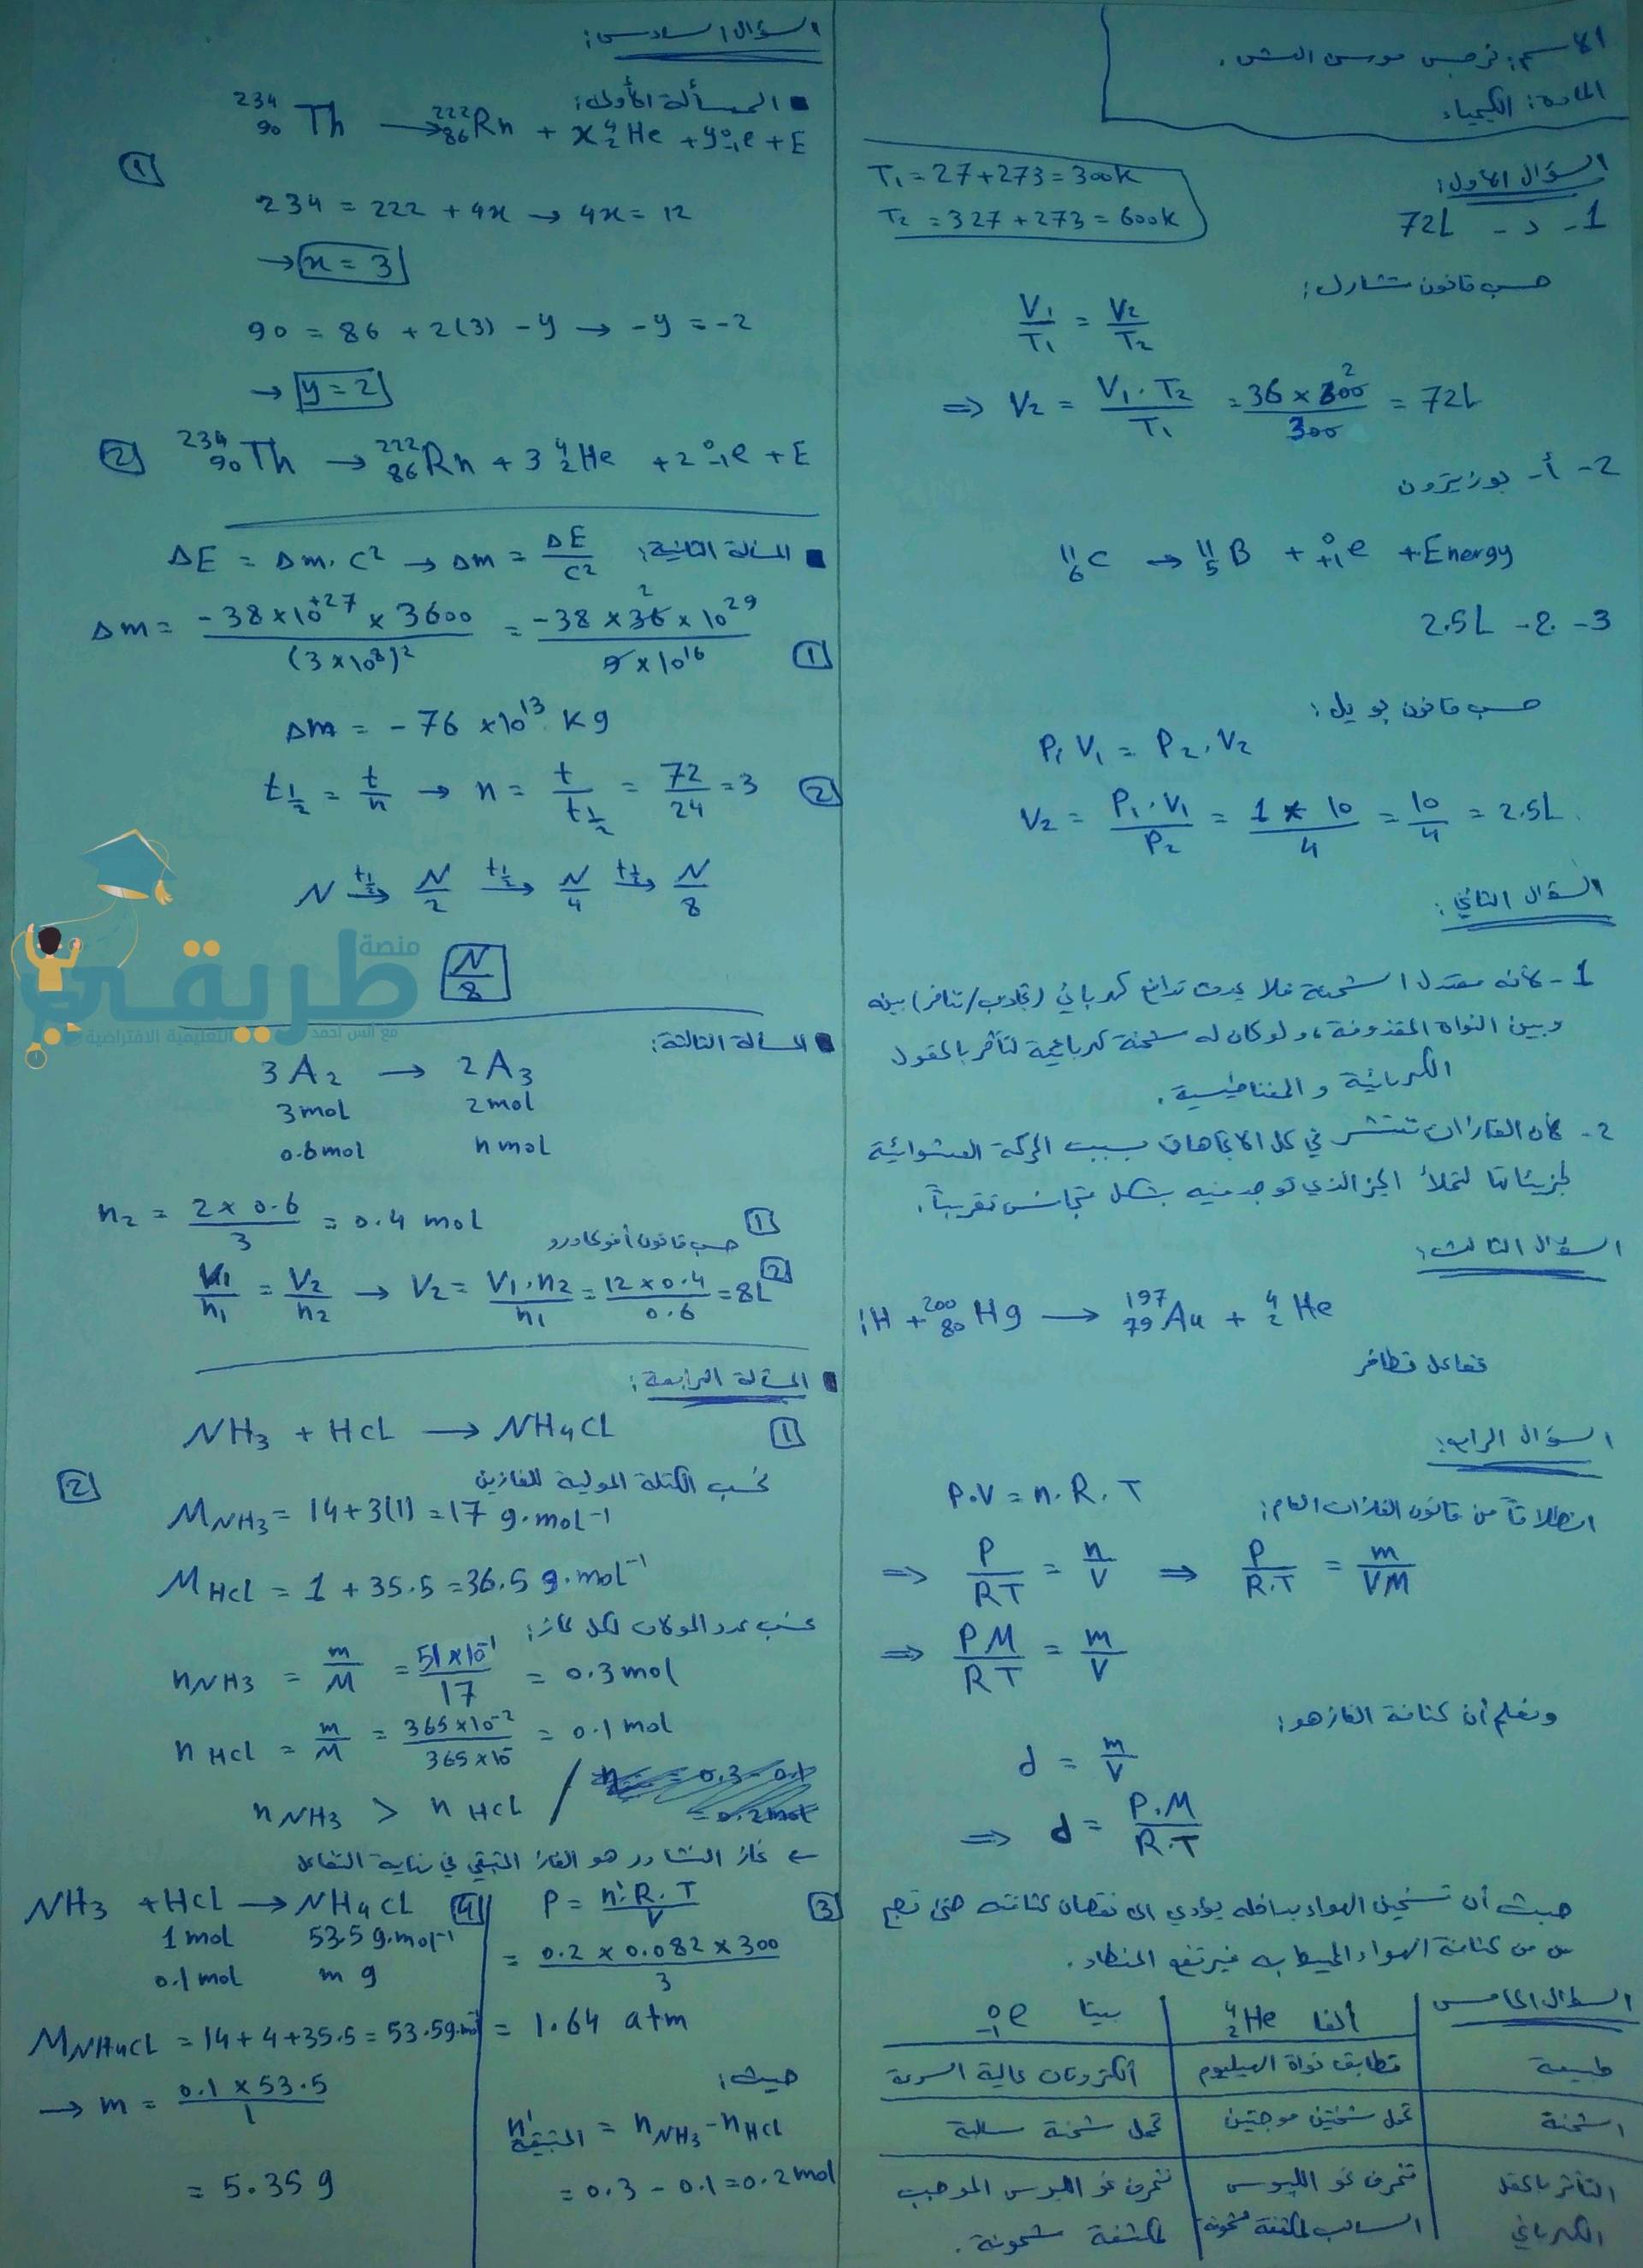 الاسم: نرجس موسى الشى.
المادة: الكيمياء
السؤال الأول:
1- د - 72L
T₁ = 27+273 = 300K
T₂ = 327+273 = 600K
حسب قانون شارل:
V₁/T₁ = V₂/T₂
⇒ V₂ = V₁·T₂/T₁ = 36×300²/300 = 72L
2- أ- بوزيترون
¹¹₆C → ¹¹₅B + ⁰₊₁e + Energy
3- 2.5L
حسب قانون بويل:
P₁V₁ = P₂.V₂
V₂ = P₁·V₁/P₂ = 1×10/4 = 10/4 = 2.5L.
السؤال الثاني:
1- لأنه معتدل الشحنة فلا يحدث تدافع كهربائي (تجاذب/تنافر) بينه
وبين النواة المقذوفة، ولو كان له شحنة كهربائية لتأثر بالحقول
الكهربائية و المغناطيسية.
2- لأن الغازات تنتشر في كل الاتجاهات بسبب الحركة العشوائية
لجزيئاتها لتملأ الحيز الذي توجد فيه بشكل متجانس تقريباً.
السؤال الثالث:
₁H + ²⁰⁰₈₀Hg → ¹⁹⁷₇₉Au + ⁴₂He
تفاعل تطافر
السؤال الرابع:
انطلاقاً من قانون الغازات العام:
P.V = n.R.T
⇒ P/RT = n/V ⇒ P/R.T = m/VM
⇒ PM/RT = m/V
ونعلم أن كثافة الغاز هو:
d = m/V
⇒ d = P.M/R.T
حيث أن تسخين الهواء بداخله يؤدي الى نقصان كثافته حتى تصبح
من كثافة الهواء المحيط به فيرتفع المنطاد.
السؤال الخامس
ألفا ⁴₂He
بيتا ⁰₋₁e
طبيعة
تطابق نواة الهيليوم
الكترونات عالية السرعة
الشحنة
تحمل شحنتين موجبتين
تحمل شحنة سالبة
التأثر بالحقل الكهربائي
تنحرف نحو اللبوس السالب لمكثفة مشحونة
تنحرف نحو اللبوس الموجب لمكثفة مشحونة.
السؤال السادس:
المسألة الأولى:
²³⁴₉₀Th → ²²²₈₆Rn + x⁴₂He + y⁰₋₁e + E
1
234 = 222 + 4x → 4x = 12
→ x = 3
90 = 86 + 2(3) - y → -y = -2
→ y = 2
2 ²³⁴₉₀Th → ²²²₈₆Rn + 3⁴₂He + 2⁰₋₁e + E
المسألة الثانية:
ΔE = Δm.C² → Δm = ΔE/C²
1 Δm = -38×10⁺²⁷ × 3600/(3×10⁸)² = -38×36×10²⁹/9×10¹⁶
Δm = -76×10¹³ Kg
2 t½ = t/n → n = t/t½ = 72/24 = 3
N →(t½) N/2 →(t½) N/4 →(t½) N/8
N/8
منصة
طريقي
التعليمية الافتراضية
مع أنس أحمد
المسألة الثالثة:
3A₂ → 2A₃
3mol 2mol
0.6mol n mol
1 n₂ = 2×0.6/3 = 0.4 mol
حسب قانون أفوغادرو
2 V₁/n₁ = V₂/n₂ → V₂ = V₁.n₂/n₁ = 12×0.4/0.6 = 8L
المسألة الرابعة:
1 NH₃ + HCl → NH₄Cl
2 نحسب الكتلة المولية للغازين
M NH₃ = 14+3(1) = 17 g.mol⁻¹
M HCl = 1 + 35.5 = 36.5 g.mol⁻¹
نحسب عدد المولات لكل غاز:
n NH₃ = m/M = 51×10⁻¹/17 = 0.3mol
n HCl = m/M = 365×10⁻²/365×10⁻ = 0.1mol
n NH₃ > n HCl /
← غاز النشادر هو الغاز المتبقي في نهاية التفاعل
3 P = n'.R.T/V
= 0.2 × 0.082 × 300/3
= 1.64 atm
حيث:
n' المتبقية = n NH₃ - n HCl
= 0.3 - 0.1 = 0.2mol
4 NH₃ + HCl → NH₄Cl
1mol 53.5 g.mol⁻¹
0.1mol m g
M NH₄Cl = 14+4+35.5 = 53.5g.mol⁻¹
→ m = 0.1×53.5/1
= 5.35 g